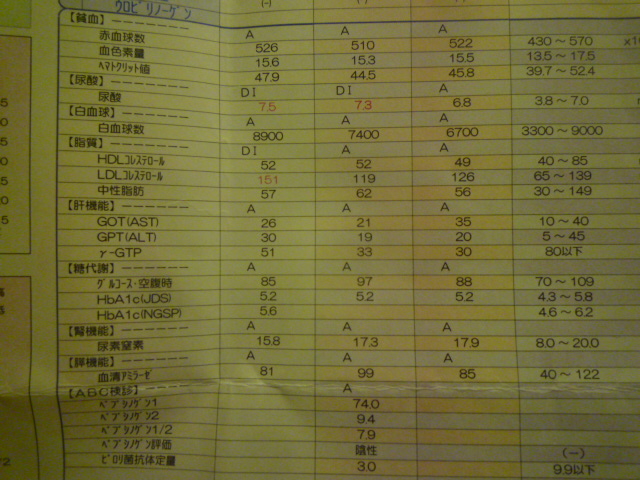 ウロビリノーゲン (-) (-) (-)
【貧血】 A A A
赤血球数 526 510 522 430 ～ 570
血色素量 15.6 15.3 15.5 13.5 ～ 17.5
ヘマトクリット値 47.9 44.5 45.8 39.7 ～ 52.4
【尿酸】 DI DI A
尿酸 7.5 7.3 6.8 3.8 ～ 7.0
【白血球】 A A A
白血球数 8900 7400 6700 3300 ～ 9000
【脂質】 DI A A
HDLコレステロール 52 52 49 40 ～ 85
LDLコレステロール 151 119 126 65 ～ 139
中性脂肪 57 62 56 30 ～ 149
【肝機能】 A A A
GOT(AST) 26 21 35 10 ～ 40
GPT(ALT) 30 19 20 5 ～ 45
γ-GTP 51 33 30 80以下
【糖代謝】 A A A
グルコース・空腹時 85 97 88 70 ～ 109
HbA1c(JDS) 5.2 5.2 5.2 4.3 ～ 5.8
HbA1c(NGSP) 5.6 4.6 ～ 6.2
【腎機能】 A A A
尿素窒素 15.8 17.3 17.9 8.0 ～ 20.0
【膵機能】 A A A
血清アミラーゼ 81 99 85 40 ～ 122
【ABC検診】 A
ペプシノゲン1 74.0
ペプシノゲン2 9.4
ペプシノゲン1/2 7.9
ペプシノゲン評価 陰性 (-)
ピロリ菌抗体定量 3.0 9.9以下